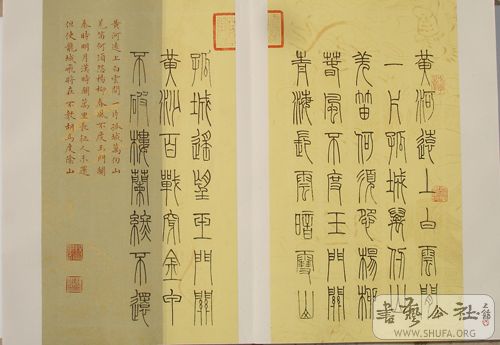 黃河遠上白雲間
一片孤城萬仞山
羌笛何須怨楊柳
春風不度玉門關
青海長雲暗雪山
孤城遙望玉門關
黃沙百戰穿金甲
不破樓蘭終不還
黃河遠上白雲間一片孤城萬仞山
羌笛何須怨楊柳春風不度玉門關
秦時明月漢時關萬里長征人未還
但使龍城飛將在不教胡馬度陰山
書藝公社
WWW.SHUFA.ORG